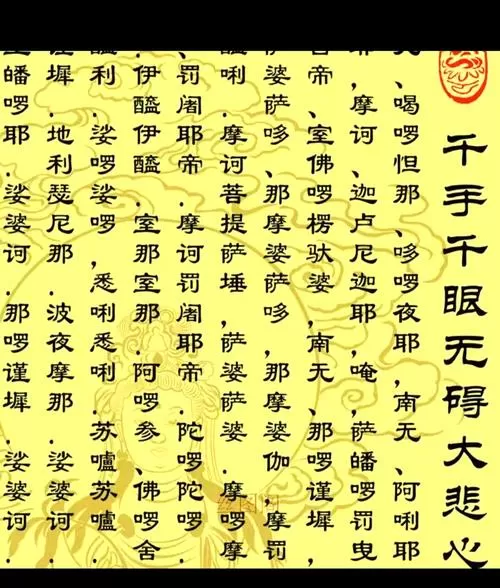 千手千眼无碍大悲心
、喝啰怛那、哆啰夜耶，南无、阿唎耶
耶，摩诃、迦卢尼迦耶，唵，萨皤啰罚曳
帝，室佛啰楞驮婆，南无、那啰谨墀，
萨婆萨哆、那摩婆萨哆，那摩婆伽，摩罚
唎．摩诃菩提萨埵．萨婆萨婆．摩啰摩
、罚阇耶帝．摩诃罚阇耶帝．陀啰陀啰．
．伊醯伊醯．室那室那．阿啰参、佛啰舍
醯利．娑啰娑啰，悉唎悉唎．苏嚧苏嚧．
墀．地利瑟尼那．波夜摩那．娑婆诃
皤啰耶．娑婆诃．那啰谨墀．娑婆诃